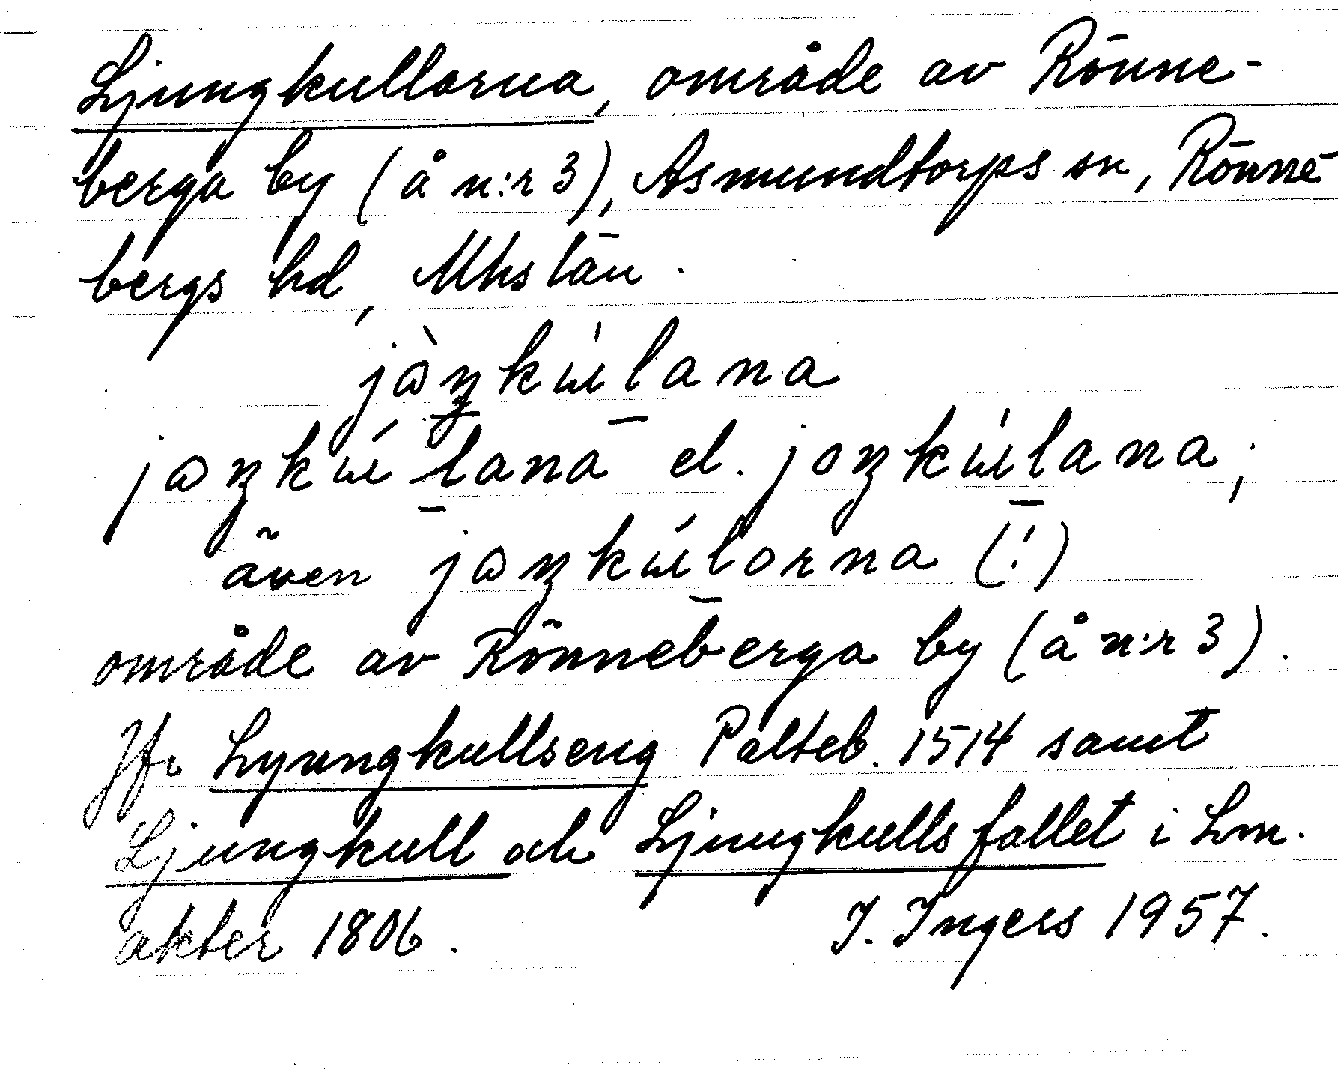 Ljungkullarna, område av Rönne-
berga by (å n:r 3), Asmundtorps sn, Rönne-
bergs hd, Mhs län.
jàŋkúlana
jaŋkúlana el. joŋkúlana;
även jaŋkúlorna (!)
område av Rönneberga by (å n:r 3).
Jfr Lyungkullseng Palteb. 1514 samt
Ljungkull och Ljungkullsfallet i Lm.
akter 1806. I. Ingers 1957.